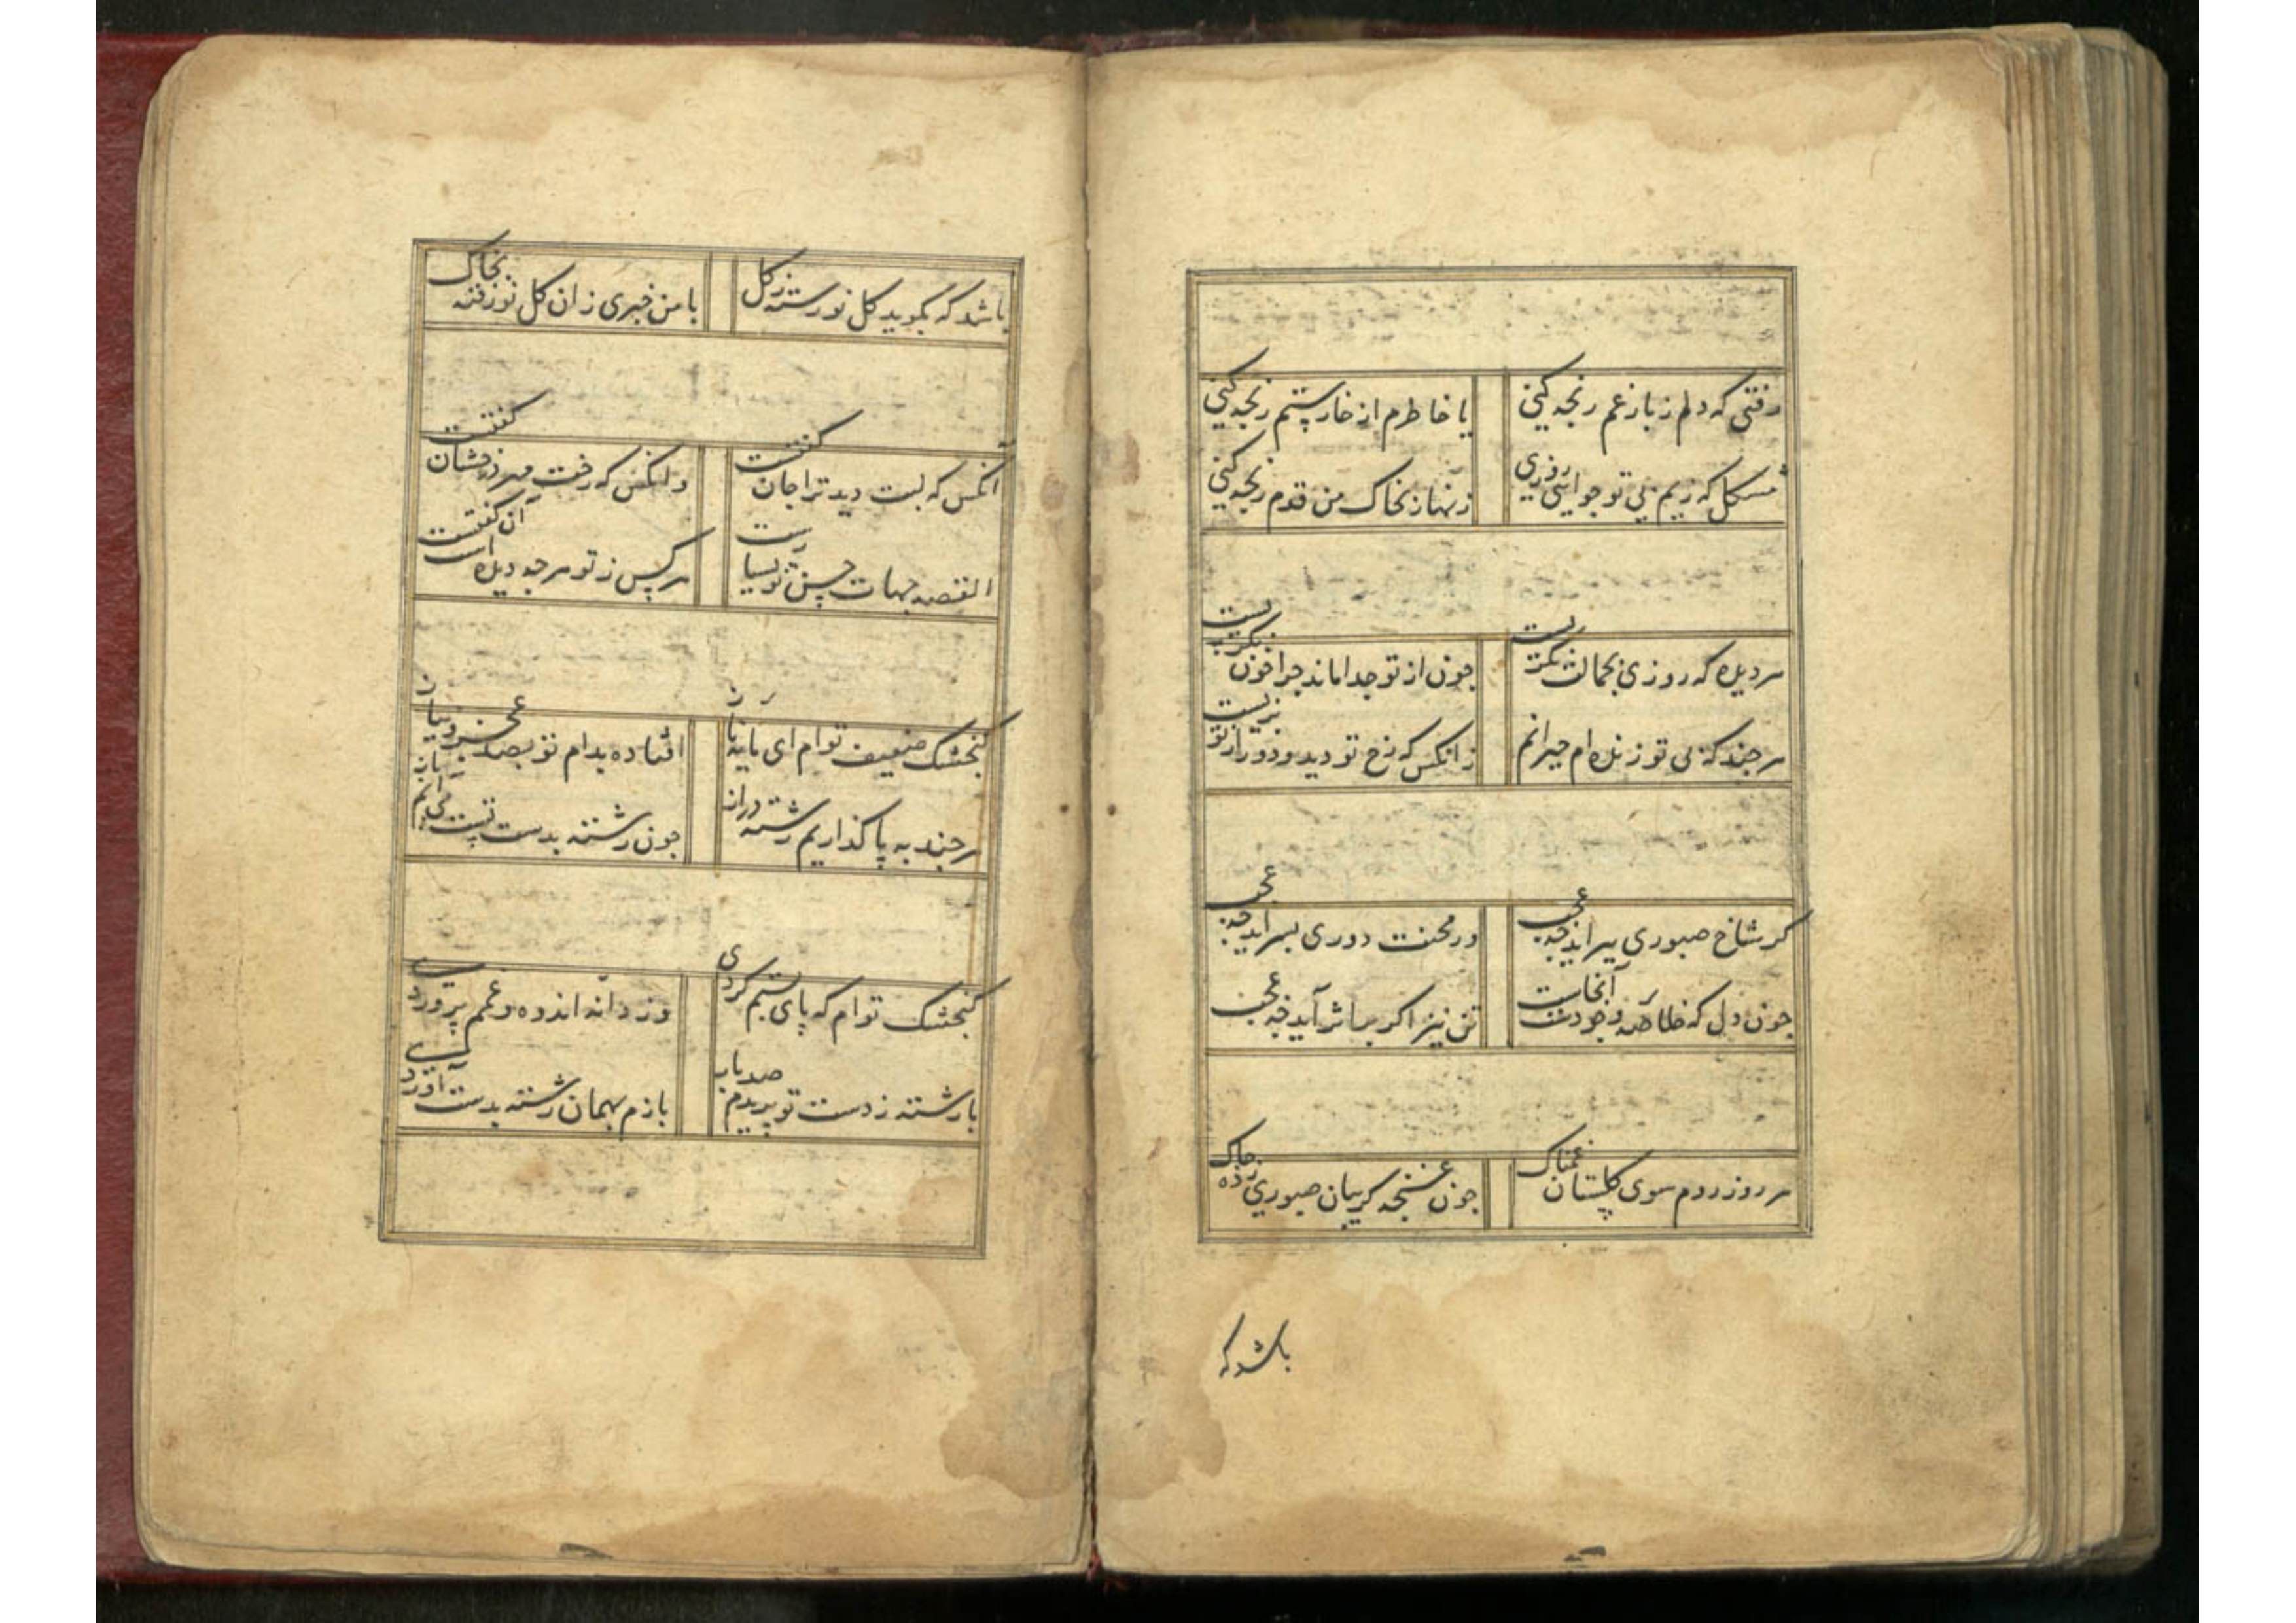 رفتی که دلم ز بار غم رنجه کنی
یا خاطرم از خار ستم رنجه کنی
مشکل که زیم بی تو جو ایی روزی
زنهار بخاک من قدم رنجه کنی
هر دیده که روزی بجمالت نگریست
جون از تو جدا ماند جرا خون نگریست
هر جند که بی تو زنده ام حیرانم
زانکس که رخ تو دید و دور از تو بزیست
کر شاخ صبوری ببر اید جه عجب
ور محنت دوری بسر اید جه عجب
جون دل که خلاصه وجودست آنجاست
تن نیز اکر بر اثر آید جه عجب
هر روز روم سوی کلستان غمناک
جون غنجه کریبان صبوری زده جاک
باشد که
باشد که بکوید کل نورسته ز کل
با من خبری زان کل نو رفته بخاک
آنکس که لبت دید ترا جان کفتست
وانکس که رخت مهر درخشان کفتست
القصه جهات حسن تو بسیارست
هر کس ز تو هر جه دیده است آن کفتست
کنجشک ضعیف توام ای مایه ناز
افتاده بدام تو بصد عجز و نیاز
هر جند به پا کذاریم رشته دراز
جون رشته بدست تست می آیم باز
کنجشک توام که پای بستم کردی
وز دانه اندوه و غمم پروردی
با رشته ز دست تو پریدم صد بار
بازم بهمان رشته بدست آوردی